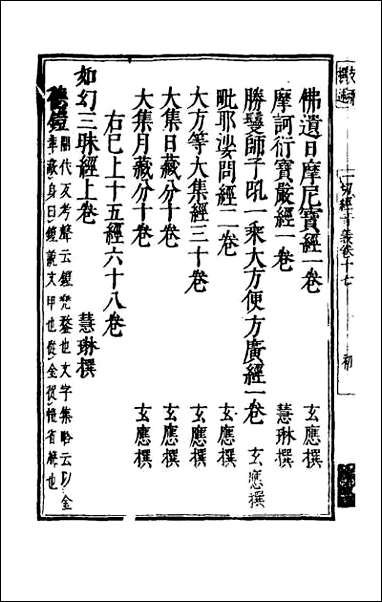 一切經音義卷十七　初
佛遺日摩尼寶經一卷　玄應撰
摩訶衍寶嚴經一卷　慧琳撰
勝鬘師子吼一乘大方便方廣經一卷　玄應撰
毗耶娑問經二卷　玄應撰
大方等大集經三十卷　玄應撰
大集日藏分十卷　玄應撰
大集月藏分十卷　玄應撰
右已上十五經六十八卷
如幻三昧經上卷　慧琳撰
鎧　開代反考聲云鎧兜鍪也文字集略云以金
革蔽身曰鎧說文甲也從金從愷省聲也